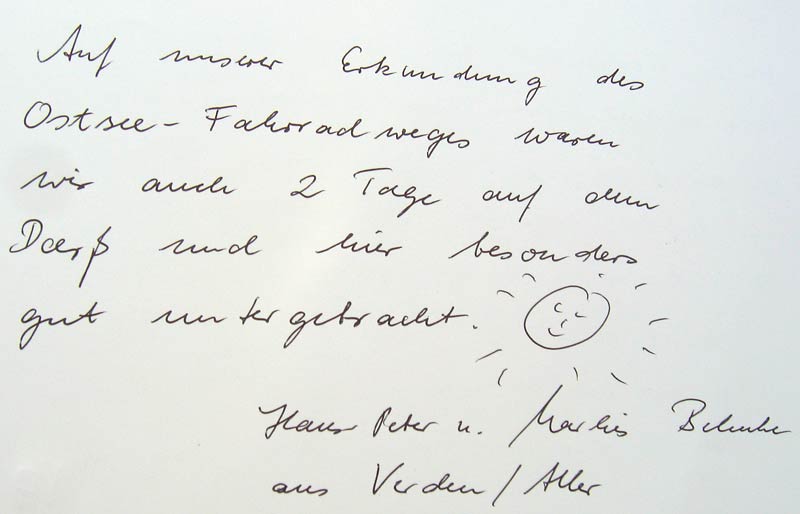 Auf unserer Erkundung des
Ostsee-Fahrradweges waren
wir auch 2 Tage auf dem
Darß und hier besonders
gut untergebracht.
Hans-Peter u. Marlies
aus Verden/Aller